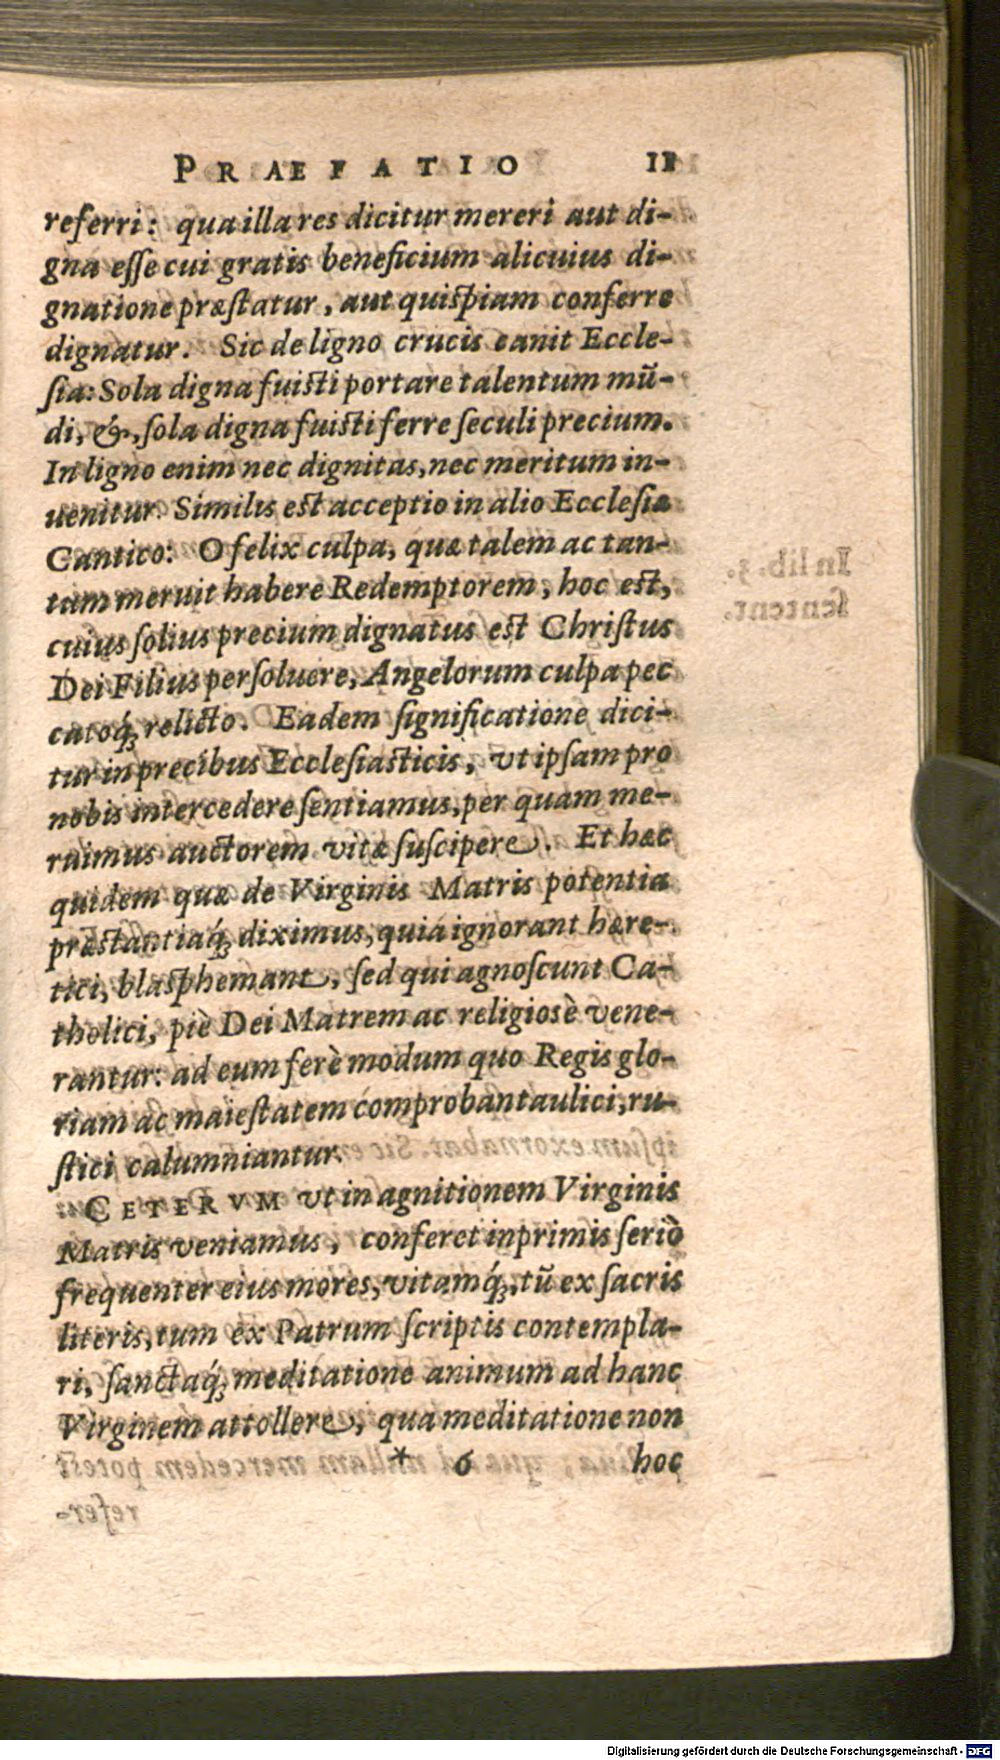 PRAEFATIO 11
referri: qua illa res dicitur mereri aut di-
gna eſſe cui gratis beneficium alicuius di-
gnatione præſtatur, aut quiſpiam conferre
dignatur. Sic de ligno crucis canit Eccle-
ſia: Sola digna fuiſti portare talentum mũ-
di, &, ſola digna fuiſti ferre ſeculi precium.
In ligno enim nec dignitas, nec meritum in-
uenitur. Similis eſt acceptio in alio Eccleſiæ
Cantico: O felix culpa, quæ talem ac tan-
tum meruit habere Redemptorem, hoc eſt,
cuius ſolius precium dignatus eſt Chriſtus
Dei Filius perſoluere, Angelorum culpa pec
catoq́ꝫ relicto. Eadem ſignificatione dici-
tur in precibus Eccleſiaſticis, vt ipſam pro
nobis intercedere ſentiamus, per quam me-
ruimus auctorem vitæ ſuſcipere. Et hæc
quidem quæ de Virginis Matris potentia
præſtantiaq́ꝫ diximus, quia ignorant hære-
tici, blaſphemant, ſed qui agnoſcunt Ca-
tholici, piè Dei Matrem ac religiosè vene-
rantur: ad eum ferè modum quo Regis glo-
riam ac maieſtatem comprobant aulici, ru-
ſtici calumniantur.
CETERVM vt in agnitionem Virginis
Matris veniamus, conferet inprimis ſeriò
frequenter eius mores, vitamq́ꝫ, tũ ex ſacris
literis, tum ex Patrum ſcriptis contempla-
ri, ſanctaq́ꝫ meditatione animum ad hanc
Virginem attollere, qua meditatione non
* 6 hoc
Digitalisierung gefördert durch die Deutsche Forschungsgemeinschaft - DFG